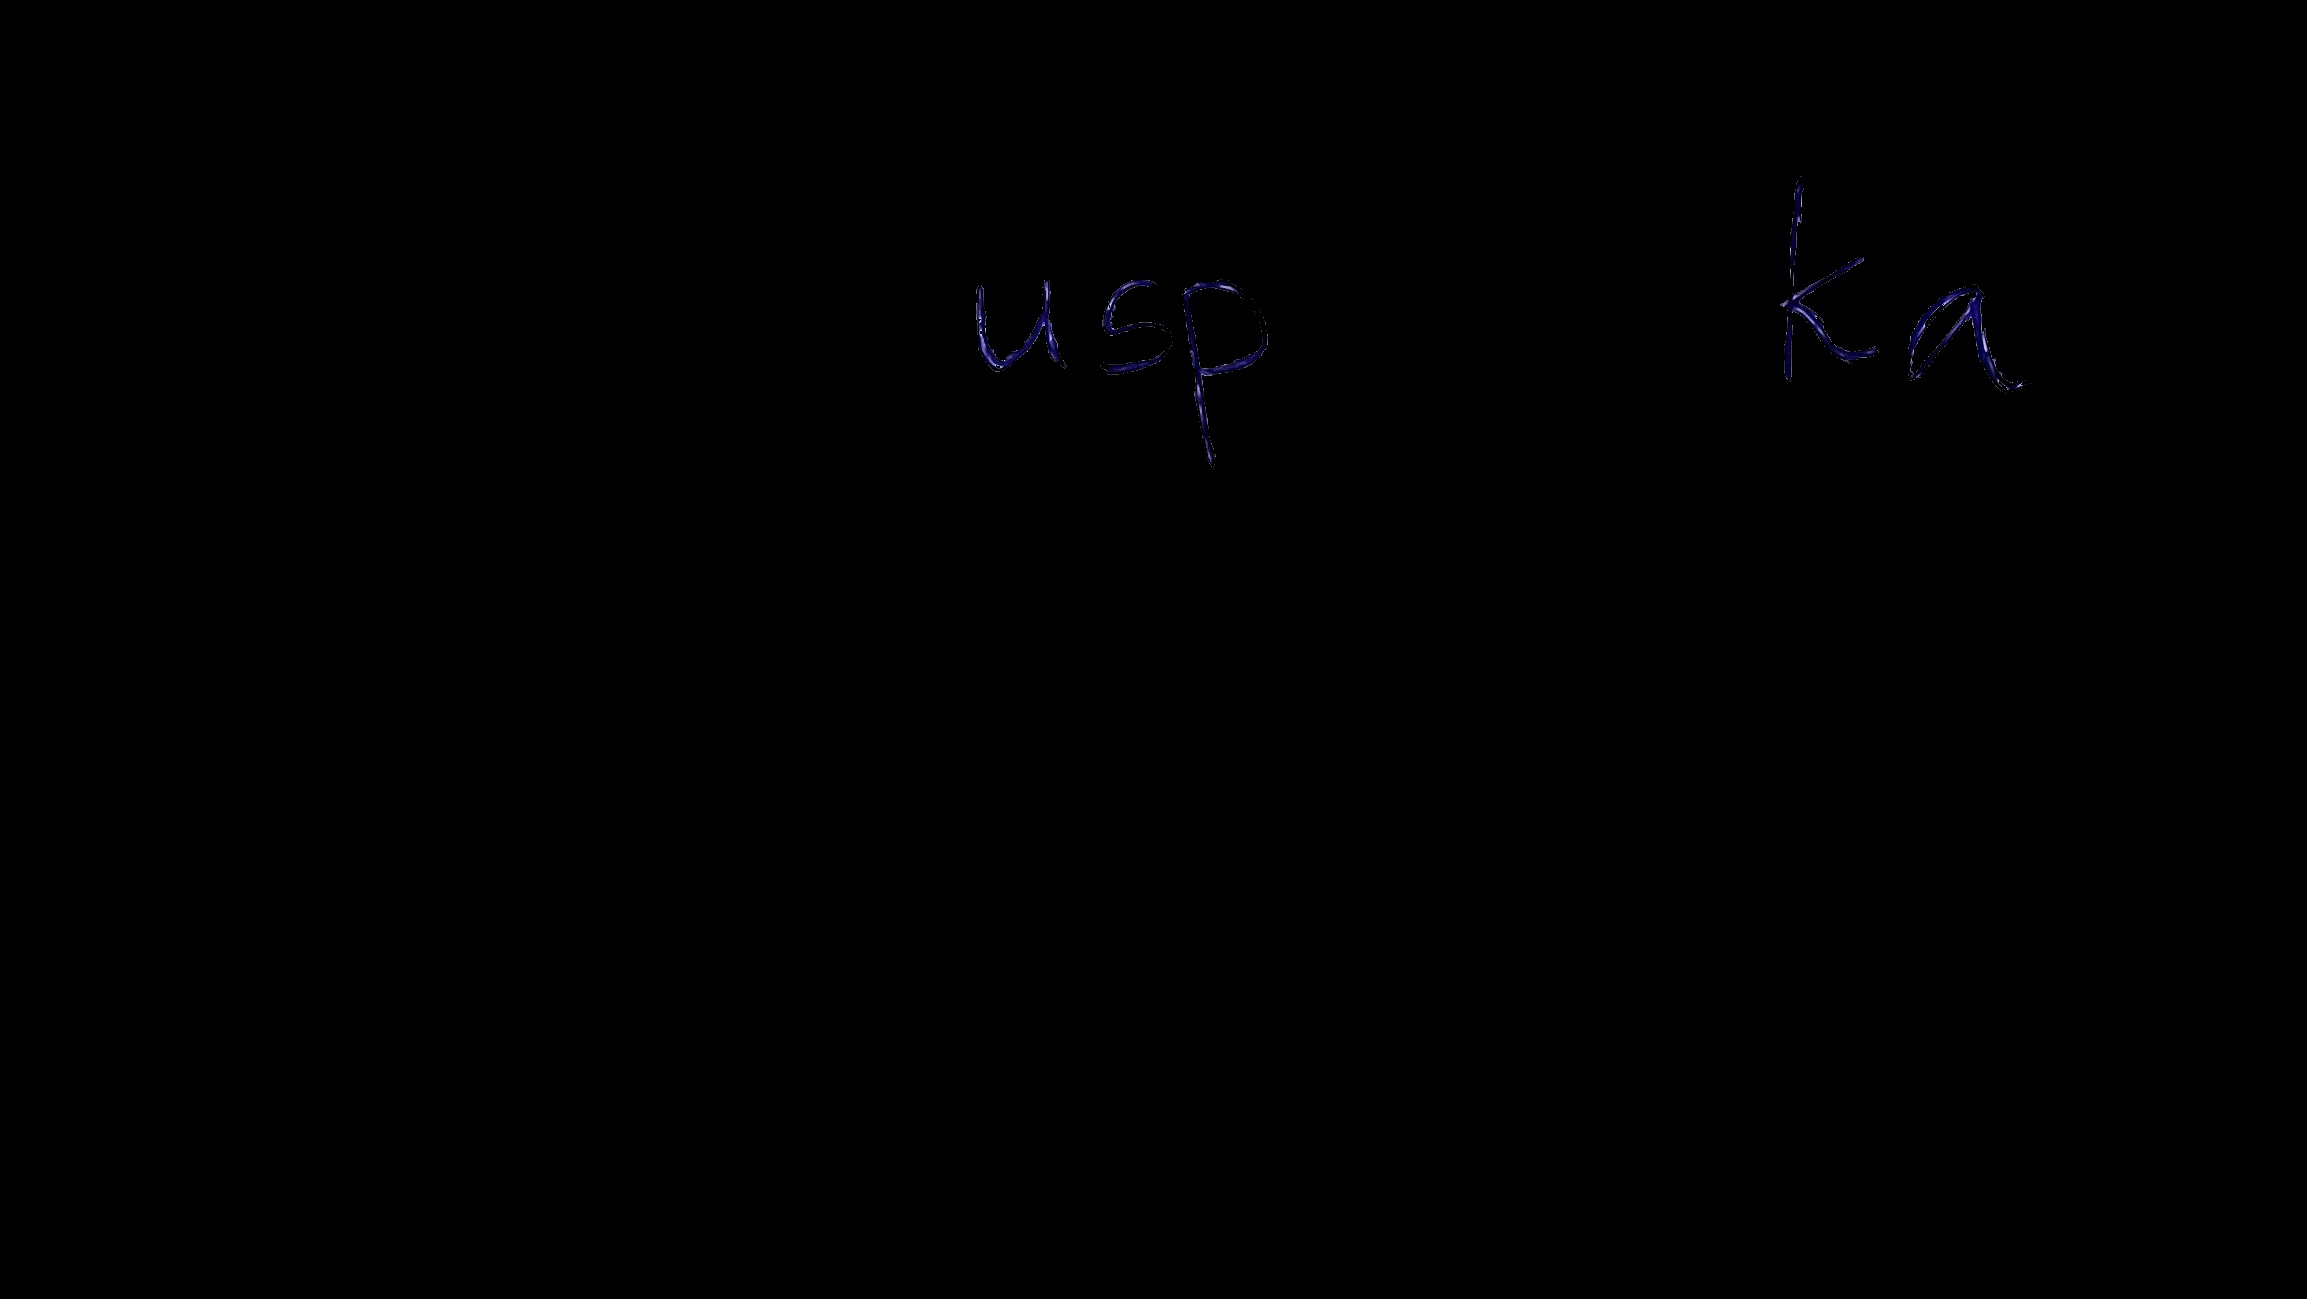 usp ka